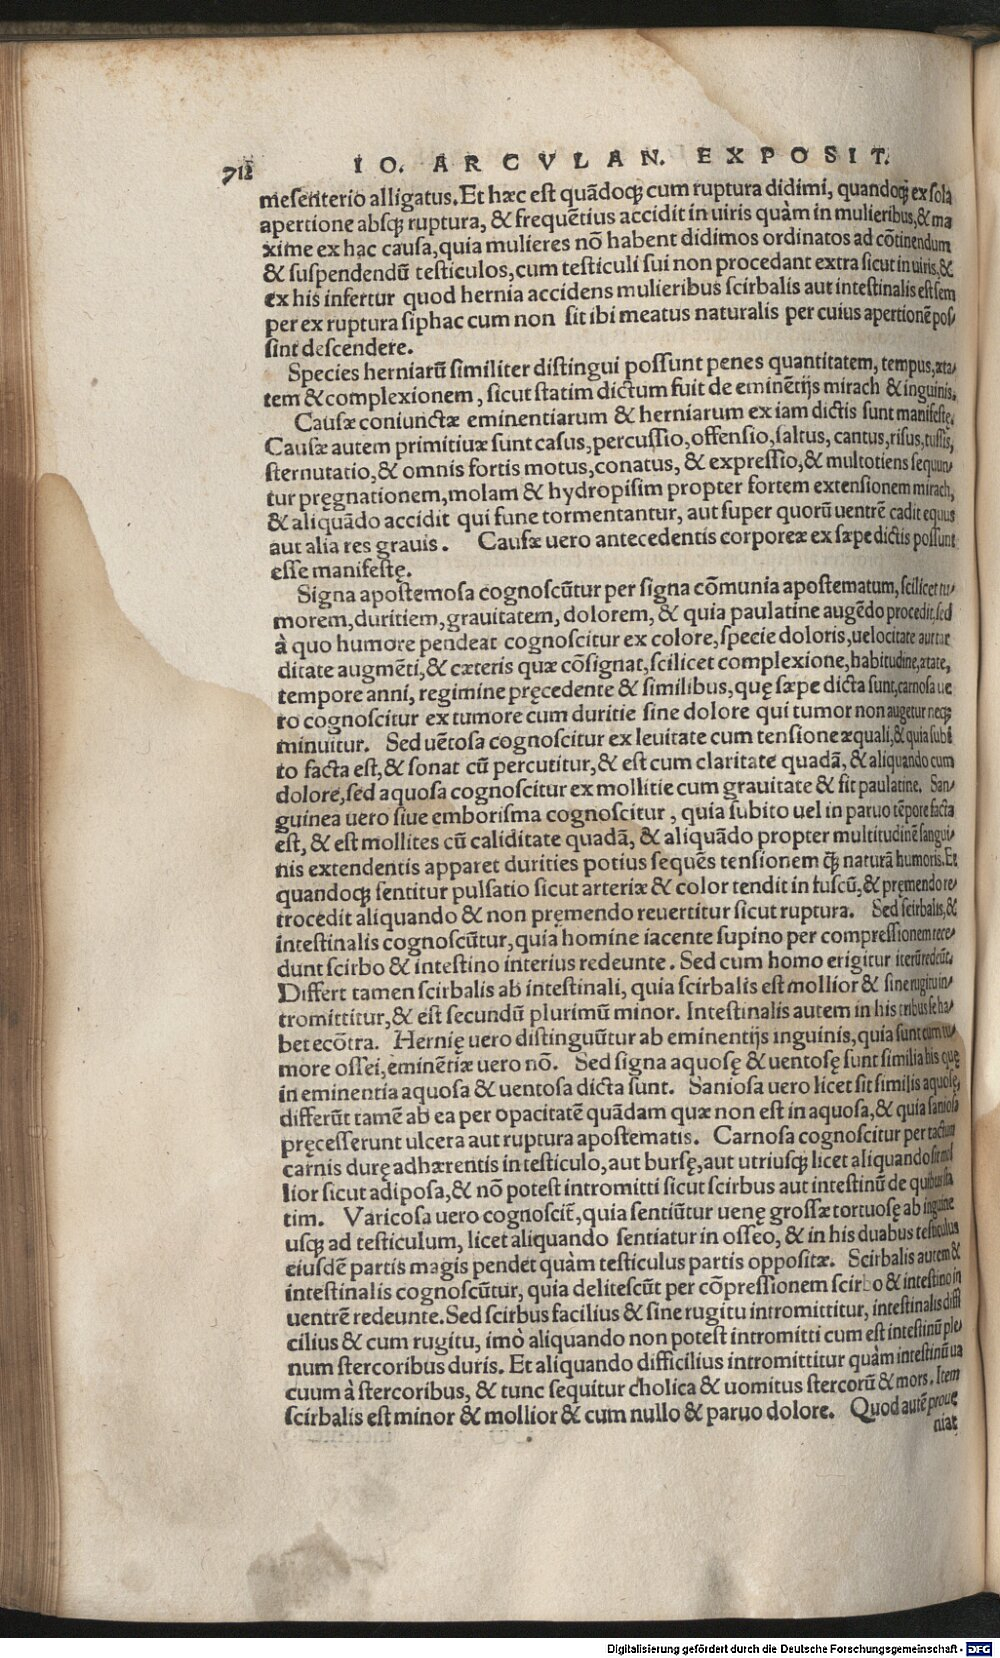 712
IO. ARCVLAN. EXPOSIT.
meſenterio alligatus. Et hæc eſt quãdoqꝫ cum ruptura didimi, quandoqꝫ ex ſola
apertione abſqꝫ ruptura, & frequẽtius accidit in uiris quàm in mulieribus, & ma
xime ex hac cauſa, quia mulieres nõ habent didimos ordinatos ad cõtinendum
& ſuſpendendũ teſticulos, cum teſticuli ſui non procedant extra ſicut in uiris, &
ex his infertur quod hernia accidens mulieribus ſcirbalis aut inteſtinalis eſt ſem
per ex ruptura ſiphac cum non ſit ibi meatus naturalis per cuius apertionẽ poſ/
ſint deſcendere.
Species herniarũ ſimiliter diſtingui poſſunt penes quantitatem, tempus, æta/
tem & complexionem, ſicut ſtatim dictum fuit de eminẽtijs mirach & inguinis.
Cauſæ coniunctæ eminentiarum & herniarum ex iam dictis ſunt manifeſte.
Cauſæ autem primitiuæ ſunt caſus, percuſſio, offenſio, ſaltus, cantus, riſus, tuſſis,
ſternutatio, & omnis fortis motus, conatus, & expreſſio, & multotiens ſequun/
tur pręgnationem, molam & hydropiſim propter fortem extenſionem mirach,
& aliquãdo accidit qui fune tormentantur, aut ſuper quorũ uentrẽ cadit equus
aut alia res grauis. Cauſæ uero antecedentis corporeæ ex ſæpe dictis poſſunt
eſſe manifeſtę.
Signa apoſtemoſa cognoſcũtur per ſigna cõmunia apoſtematum, ſcilicet tu/
morem, duritiem, grauitatem, dolorem, & quia paulatine augẽdo procedit, ſed
à quo humore pendeat cognoſcitur ex colore, ſpecie doloris, uelocitate aut tar
ditate augmẽti, & cæteris quæ cõſignat, ſcilicet complexione, habitudine, ætate,
tempore anni, regimine pręcedente & ſimilibus, quę ſæpe dicta ſunt, carnoſa ue
ro cognoſcitur ex tumore cum duritie ſine dolore qui tumor non augetur neqꝫ
minuitur. Sed uẽtoſa cognoſcitur ex leuitate cum tenſione æquali, & quia ſubi
to facta eſt, & ſonat cũ percutitur, & eſt cum claritate quadã, & aliquando cum
dolore, ſed aquoſa cognoſcitur ex mollitie cum grauitate & fit paulatine. San/
guinea uero ſiue emboriſma cognoſcitur, quia ſubito uel in paruo tẽpore facta
eſt, & eſt mollities cũ caliditate quadã, & aliquãdo propter multitudinẽ ſangui/
nis extendentis apparet durities potius ſequẽs tenſionem ꝙ̃ naturã humoris. Et
quandoqꝫ ſentitur pulſatio ſicut arteriæ & color tendit in fuſcũ, & pręmendo re/
trocedit aliquando & non pręmendo reuertitur ſicut ruptura. Sed ſcirbalis, &
inteſtinalis cognoſcũtur, quia homine iacente ſupino per compreſſionem rece/
dunt ſcirbo & inteſtino interius redeunte. Sed cum homo erigitur iterũ redeũt.
Differt tamen ſcirbalis ab inteſtinali, quia ſcirbalis eſt mollior & ſine rugitu in/
tromittitur, & eſt ſecundũ plurimũ minor. Inteſtinalis autem in his tribus ſe ha/
bet ecõtra. Hernię uero diſtinguũtur ab eminentijs inguinis, quia ſunt cum tu/
more oſſei, eminẽtiæ uero nõ. Sed ſigna aquoſę & uentoſę ſunt ſimilia his quę
in eminentia aquoſa & uentoſa dicta ſunt. Saniosa uero licet ſit ſimilis aquoſę,
differũt tamẽ ab ea per opacitatẽ quãdam quæ non eſt in aquoſa, & quia ſanioſa
pręceſſerunt ulcera aut ruptura apoſtematis. Carnoſa cognoſcitur per tactum
carnis durę adhærentis in teſticulo, aut burſę, aut utriuſqꝫ licet aliquando ſit mol
lior ſicut adipoſa, & nõ poteſt intromitti ſicut ſcirbus aut inteſtinũ de quibus ſta
tim. Varicoſa uero cognoſcit᷑, quia ſentiũtur uenę groſſæ tortuoſę ab inguine
uſqꝫ ad teſticulum, licet aliquando ſentiatur in oſſeo, & in his duabus teſticulus
eiuſdẽ partis magis pendet quàm teſticulus partis oppoſitæ. Scirbalis autem &
inteſtinalis cognoſcũtur, quia deliteſcũt per cõpreſſionem ſcirbo & inteſtino in
uentrẽ redeunte. Sed ſcirbus facilius & ſine rugitu intromittitur, inteſtinalis diffi
cilius & cum rugitu, imò aliquando non poteſt intromitti cum eſt inteſtinũ ple/
num ſtercoribus duris. Et aliquando difficilius intromittitur quàm inteſtinũ ua
cuum à ſtercoribus, & tunc ſequitur cholica & uomitus ſtercorũ & mors. Item
ſcirbalis eſt minor & mollior & cum nullo & paruo dolore. Quod autẽ proue
niat
Digitalisierung gefördert durch die Deutsche Forschungsgemeinschaft - DFG